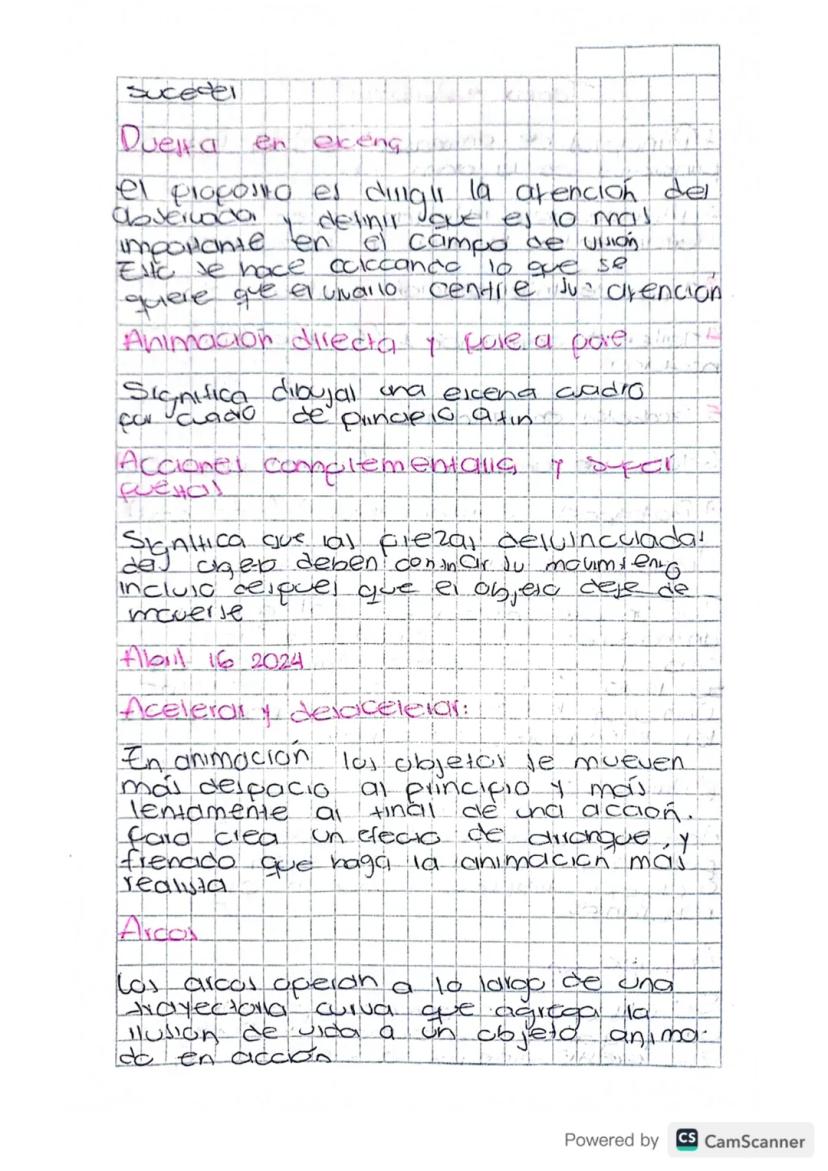 suceder
Puesta en escena
el proposito es dirigir la atención del
observador y definir que es lo mas
importante en el campo de visión
Esto se hace colocando lo que se
quiere que el usuario centre su atención
Animación directa y pose a pose
Significa dibujar una escena cuadro
por cuadro de principio a fin
Acciones complementarias y super
puestas
Significa que las piezas desvinculadas
del objeto deben continar su movimiento
incluso despues que el objeto deje de
moverse
Abril 16 2024
Acelerar y desacelerar:
En animación los objetos se mueven
más despacio al principio y más
lentamente al final de una acción.
para crea un efecto de arranque y
frenado que haga la animación más
realista
Arcos
Los arcos operan a lo largo de una
trayectoria curva que agrega la
ilusión de vida a un objeto anima-
do en acción
Powered by CS CamScanner